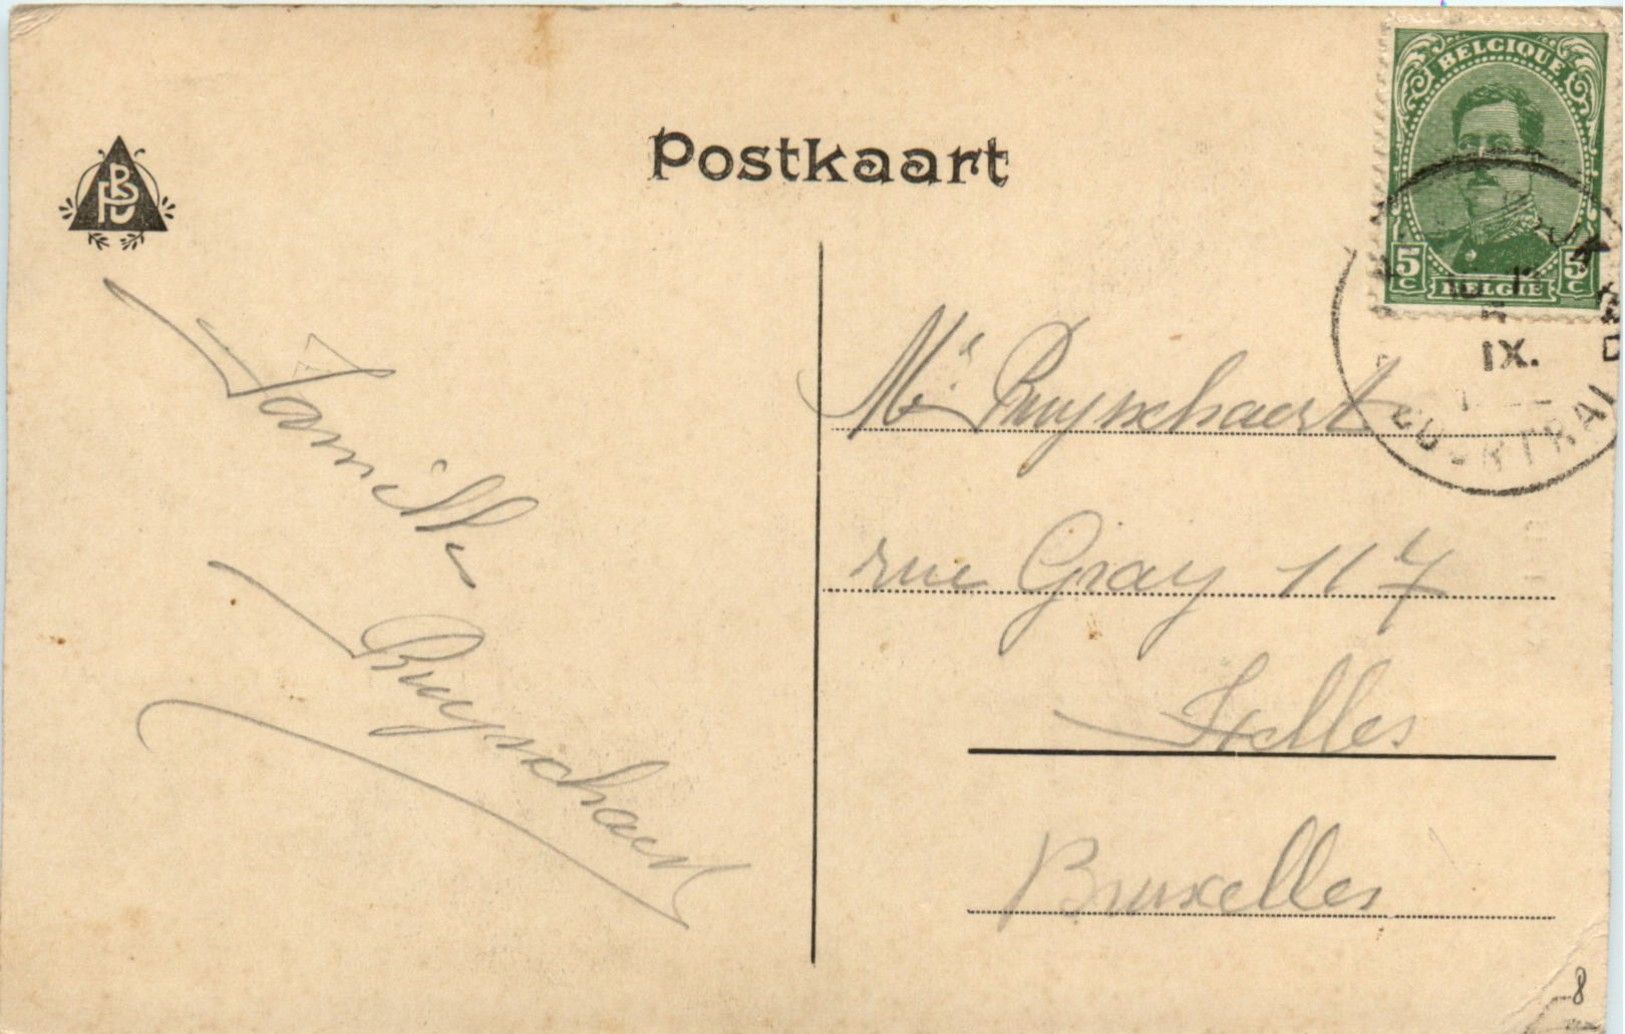 Postkaart
BELGIQUE
5 C
5 C
BELGIË
IX.
COURTRAI
Famille
Ruysschaert
Mr Ruysschaert
rue Gray 117
Ixelles
Bruxelles
8